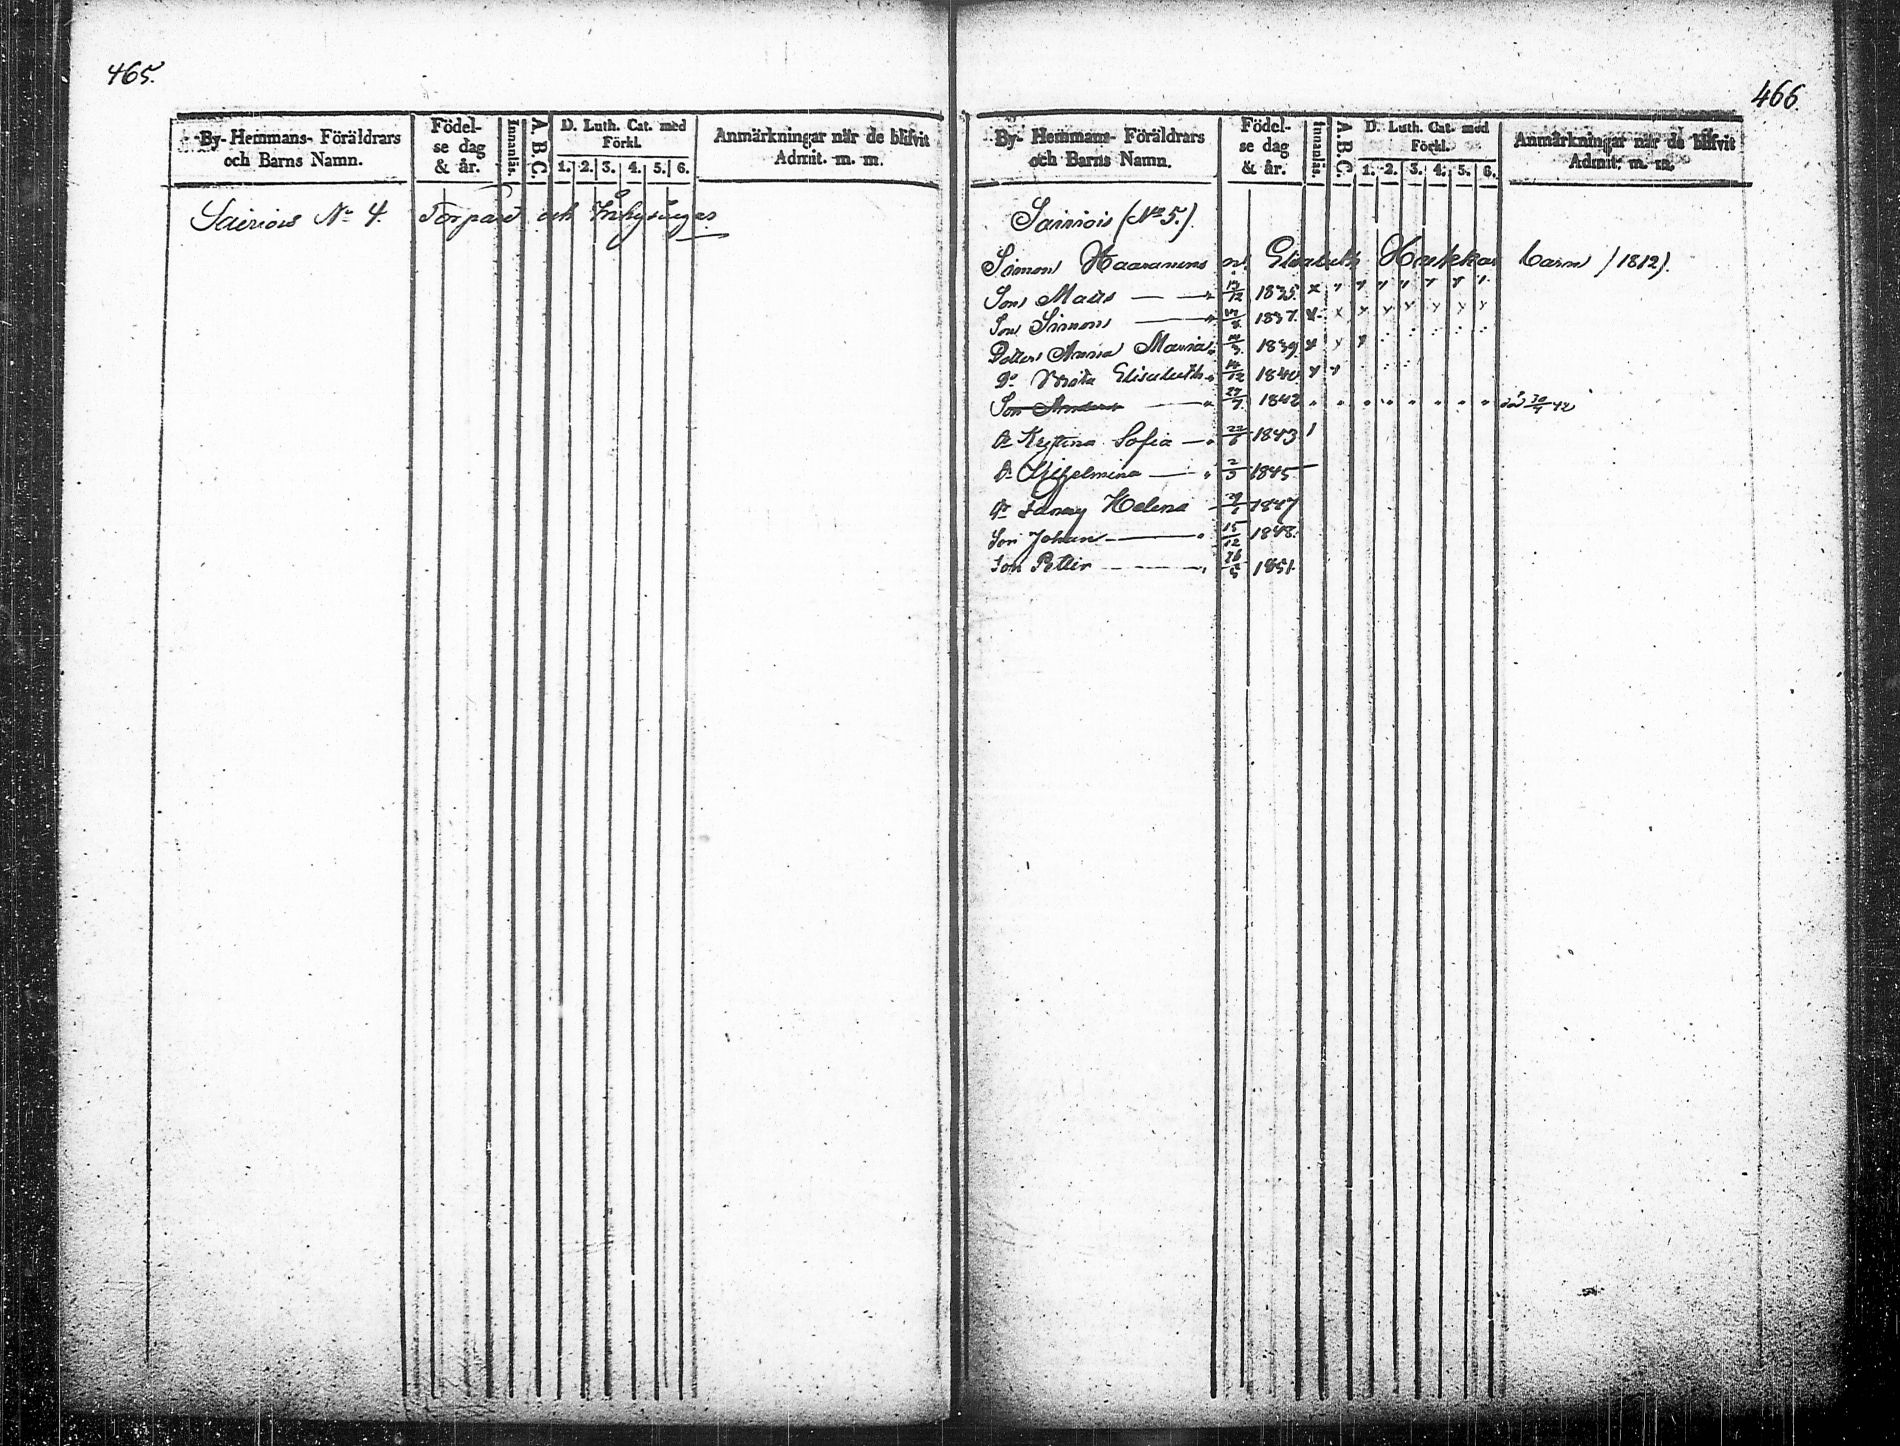 465.
By- Hemmans- Föräldrars och Barns Namn.
Födel- se dag & år.
Innanläs.
A.B.C.
D. Luth. Cat. med Förkl.
1. 2. 3. 4. 5. 6.
Anmärkningar när de blifvit Admit. m. m.
Sairiois No 4. Torpare och Inhysinges
466.
By- Hemmans- Föräldrars och Barns Namn.
Födel- se dag & år.
Innanläs.
A.B.C.
D. Luth. Cat. med Förkl.
1. 2. 3. 4. 5. 6.
Anmärkningar när de blifvit Admit. m. m.
Sairiois (No 5.)
Simon Haaranens och Elisabeth Hukkas barn /1812).
Son Matts 1835
Son Simon 1837
Dotter Anna Maria 1839
Do Brita Elisabeth 14/12 1840
Son Anders 27/7 1842
Do Kristina Sofia 22/6 1843
Do Wilhelmina 2/3 1845
Do Fanny Helena 1847
Son Johan 15/12 1848
Son Petter 26/5 1851